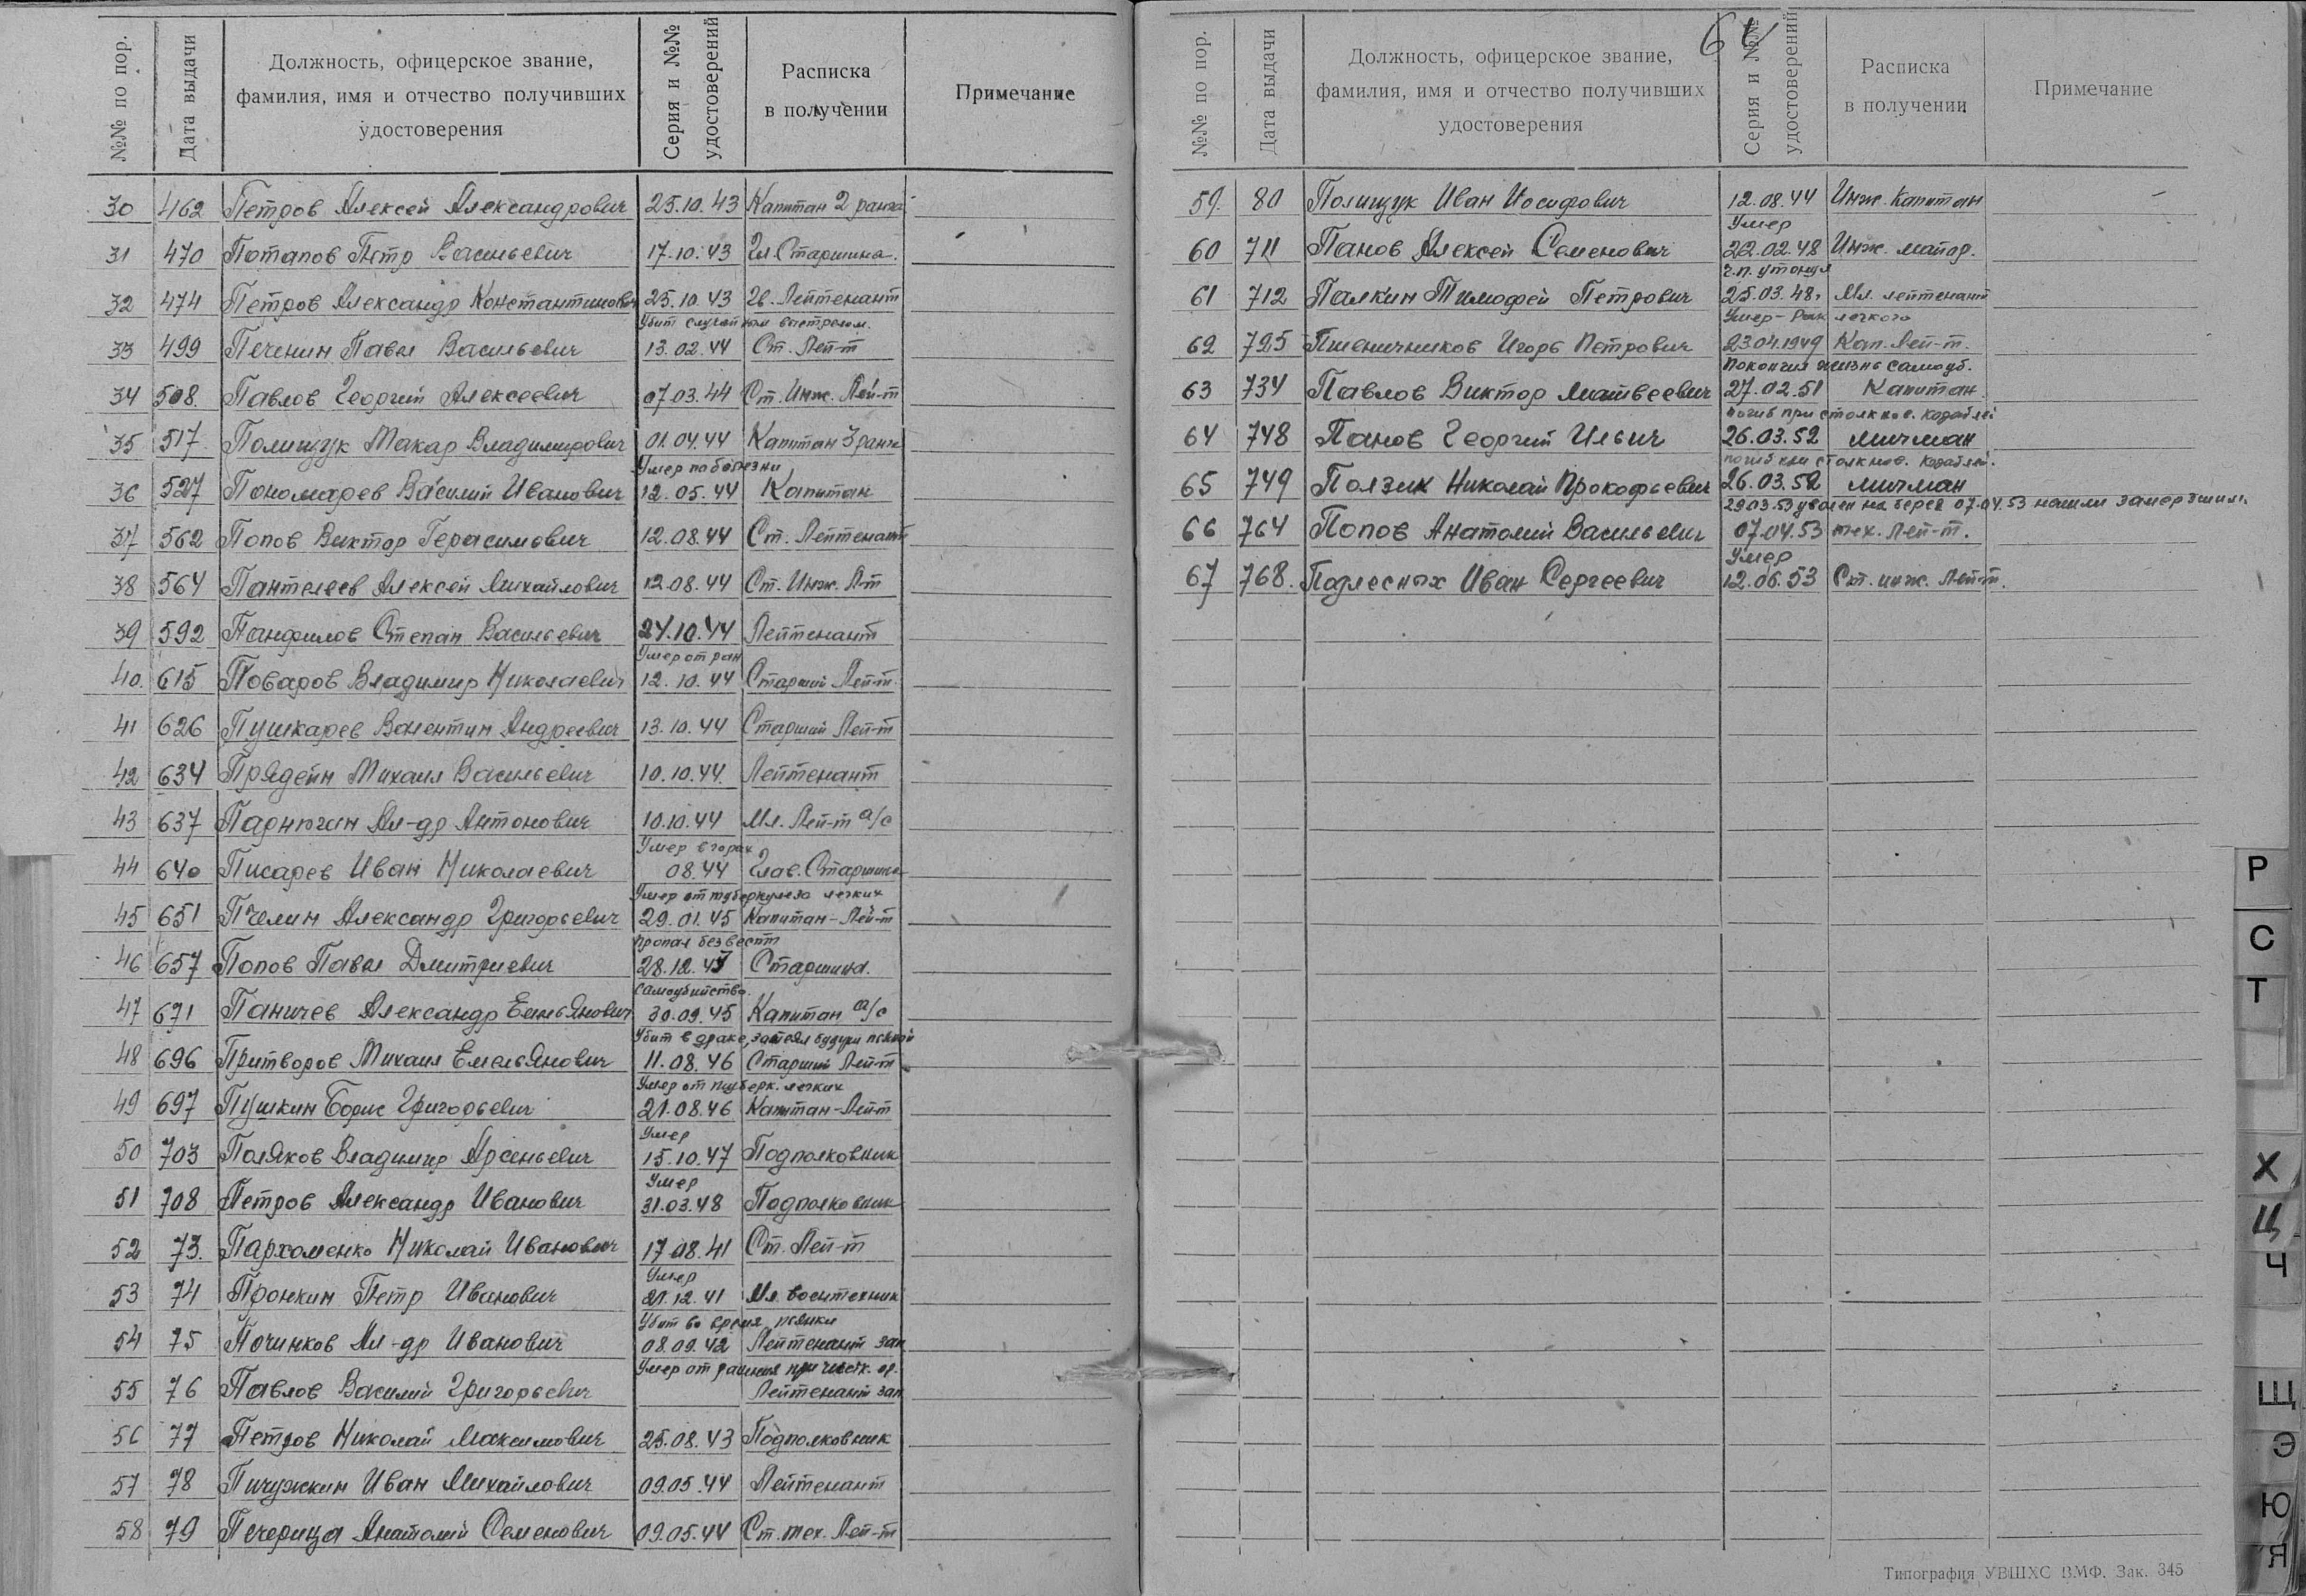 №№ по пор.
Дата выдачи
Должность, офицерское звание,
фамилия, имя и отчество получивших
удостоверения
Серия и №№
удостоверений
Расписка
в получении
Примечание
30 462 Петров Алексей Александрович 25.10.43 Капитан 2 ранга
31 470 Потапов Петр Васильевич 17.10.43 Гл. Старшина.
32 474 Петров Александр Константинович 25.10.43 Гв. Лейтенант
Убит случайным выстрелом.
33 499 Печенин Павел Васильевич 13.02.44 Ст. Лей-т
34 508. Павлов Георгий Алексеевич 07.03.44 Ст. Инж. Лей-т
35 517 Полищук Макар Владимирович 01.04.44 Капитан 3 ранга
Умер по болезни
36 527 Пономарев Василий Иванович 12.05.44 Капитан
37 562 Попов Виктор Герасимович 12.08.44 Ст. Лейтенант
38 564 Пантелеев Алексей Михайлович 12.08.44 Ст. Инж. Л-т
39 592 Панфилов Степан Васильевич 24.10.44 Лейтенант
Умер от ран
40. 615 Поваров Владимир Николаевич 12.10.44 Старший Лей-т.
41 626 Пушкарев Валентин Андреевич 13.10.44 Старший Лей-т
42 634 Прядеин Михаил Васильевич 10.10.44. Лейтенант
43 637 Парнюгин Ал-др Антонович 10.10.44 Мл. Лей-т а/с
Умер в
44 640 Писарев Иван Николаевич 08.44 Глав. Старшина
Умер от туберкулеза легких
45 651 Пчелин Александр Григорьевич 29.01.45 Капитан-Лей-т
пропал без вести
46 657 Попов Павел Дмитриевич 28.12.45 Старшина.
Самоубийство.
47 671 Паничев Александр Емельянович 30.09.45 Капитан а/с
Убит в драке, затеял будучи пьяной
48 696 Притворов Михаил Емельянович 11.08.46 Старший Лей-т
Умер от туберк. легких
49 697 Пушкин Борис Григорьевич 21.08.46 Капитан-Лей-т
Умер
50 703 Поляков Владимир Арсеньевич 15.10.47 Подполковник
Умер
51 708 Петров Александр Иванович 31.03.48 Подполковник
52 73. Пархоменко Николай Иванович 17.08.41 Ст. Лей-т
Умер
53 74 Пронкин Петр Иванович 21.12.41 Мл. воентехник
Убит во время пьянки
54 75 Починков Ал-др Иванович 08.09.42 Лейтенант зап
Умер от ранения при чистк. ор.
55 76 Павлов Василий Григорьевич Лейтенант зап
56 77 Петров Николай Максимович 25.08.43 Подполковник
57 78 Пичужкин Иван Михайлович 09.05.44 Лейтенант
58 79 Печерица Анатолий Семенович 09.05.44 Ст. тех. Лей-т
№№ по пор.
Дата выдачи
Должность, офицерское звание,
фамилия, имя и отчество получивших
удостоверения
Серия и №№
удостоверений
Расписка
в получении
Примечание
59. 80 Полищук Иван Иосифович 12.08.44 Инж. Капитан
Умер
60 711 Панов Алексей Семенович 22.02.48 Инж. майор.
ч.п. утонул
61 712 Палкин Тимофей Петрович 25.03.48. Мл. лейтенант
Умер - Рак легкого
62 725 Пшеничников Игорь Петрович 23.04.1949 Кап. Лей-т.
Покончил жизнь самоуб.
63 734 Павлов Виктор Матвеевич 27.02.51 Капитан.
Погиб при столкнов. кораблей
64 748 Панов Георгий Ильич 26.03.52 мичман
погиб при столкнов. кораблей.
65 749 Ползик Николай Прокофьевич 26.03.52 мичман
29.03.53 уволен на берег 07.04.53 нашли замерзшим.
66 764 Попов Анатолий Васильевич 07.04.53 тех. Лей-т.
Умер
67 768. Подлесных Иван Сергеевич 12.06.53 Ст. инж. Лей-т.
Р
С
Т
Х
Ц
Ч
Щ
Э
Ю
Я
Типография УВШХС ВМФ. Зак. 345